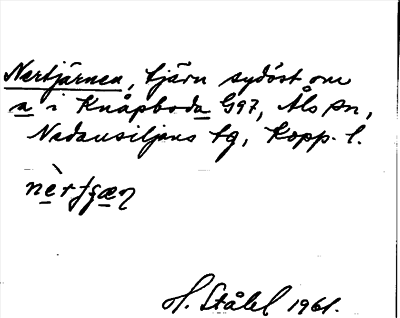 Nertjärnen, tjärn sydöst om
a i Knåpboda G97, Åls sn,
Nedansiljans tg, Kopp. l.
H. Ståhl 1961.